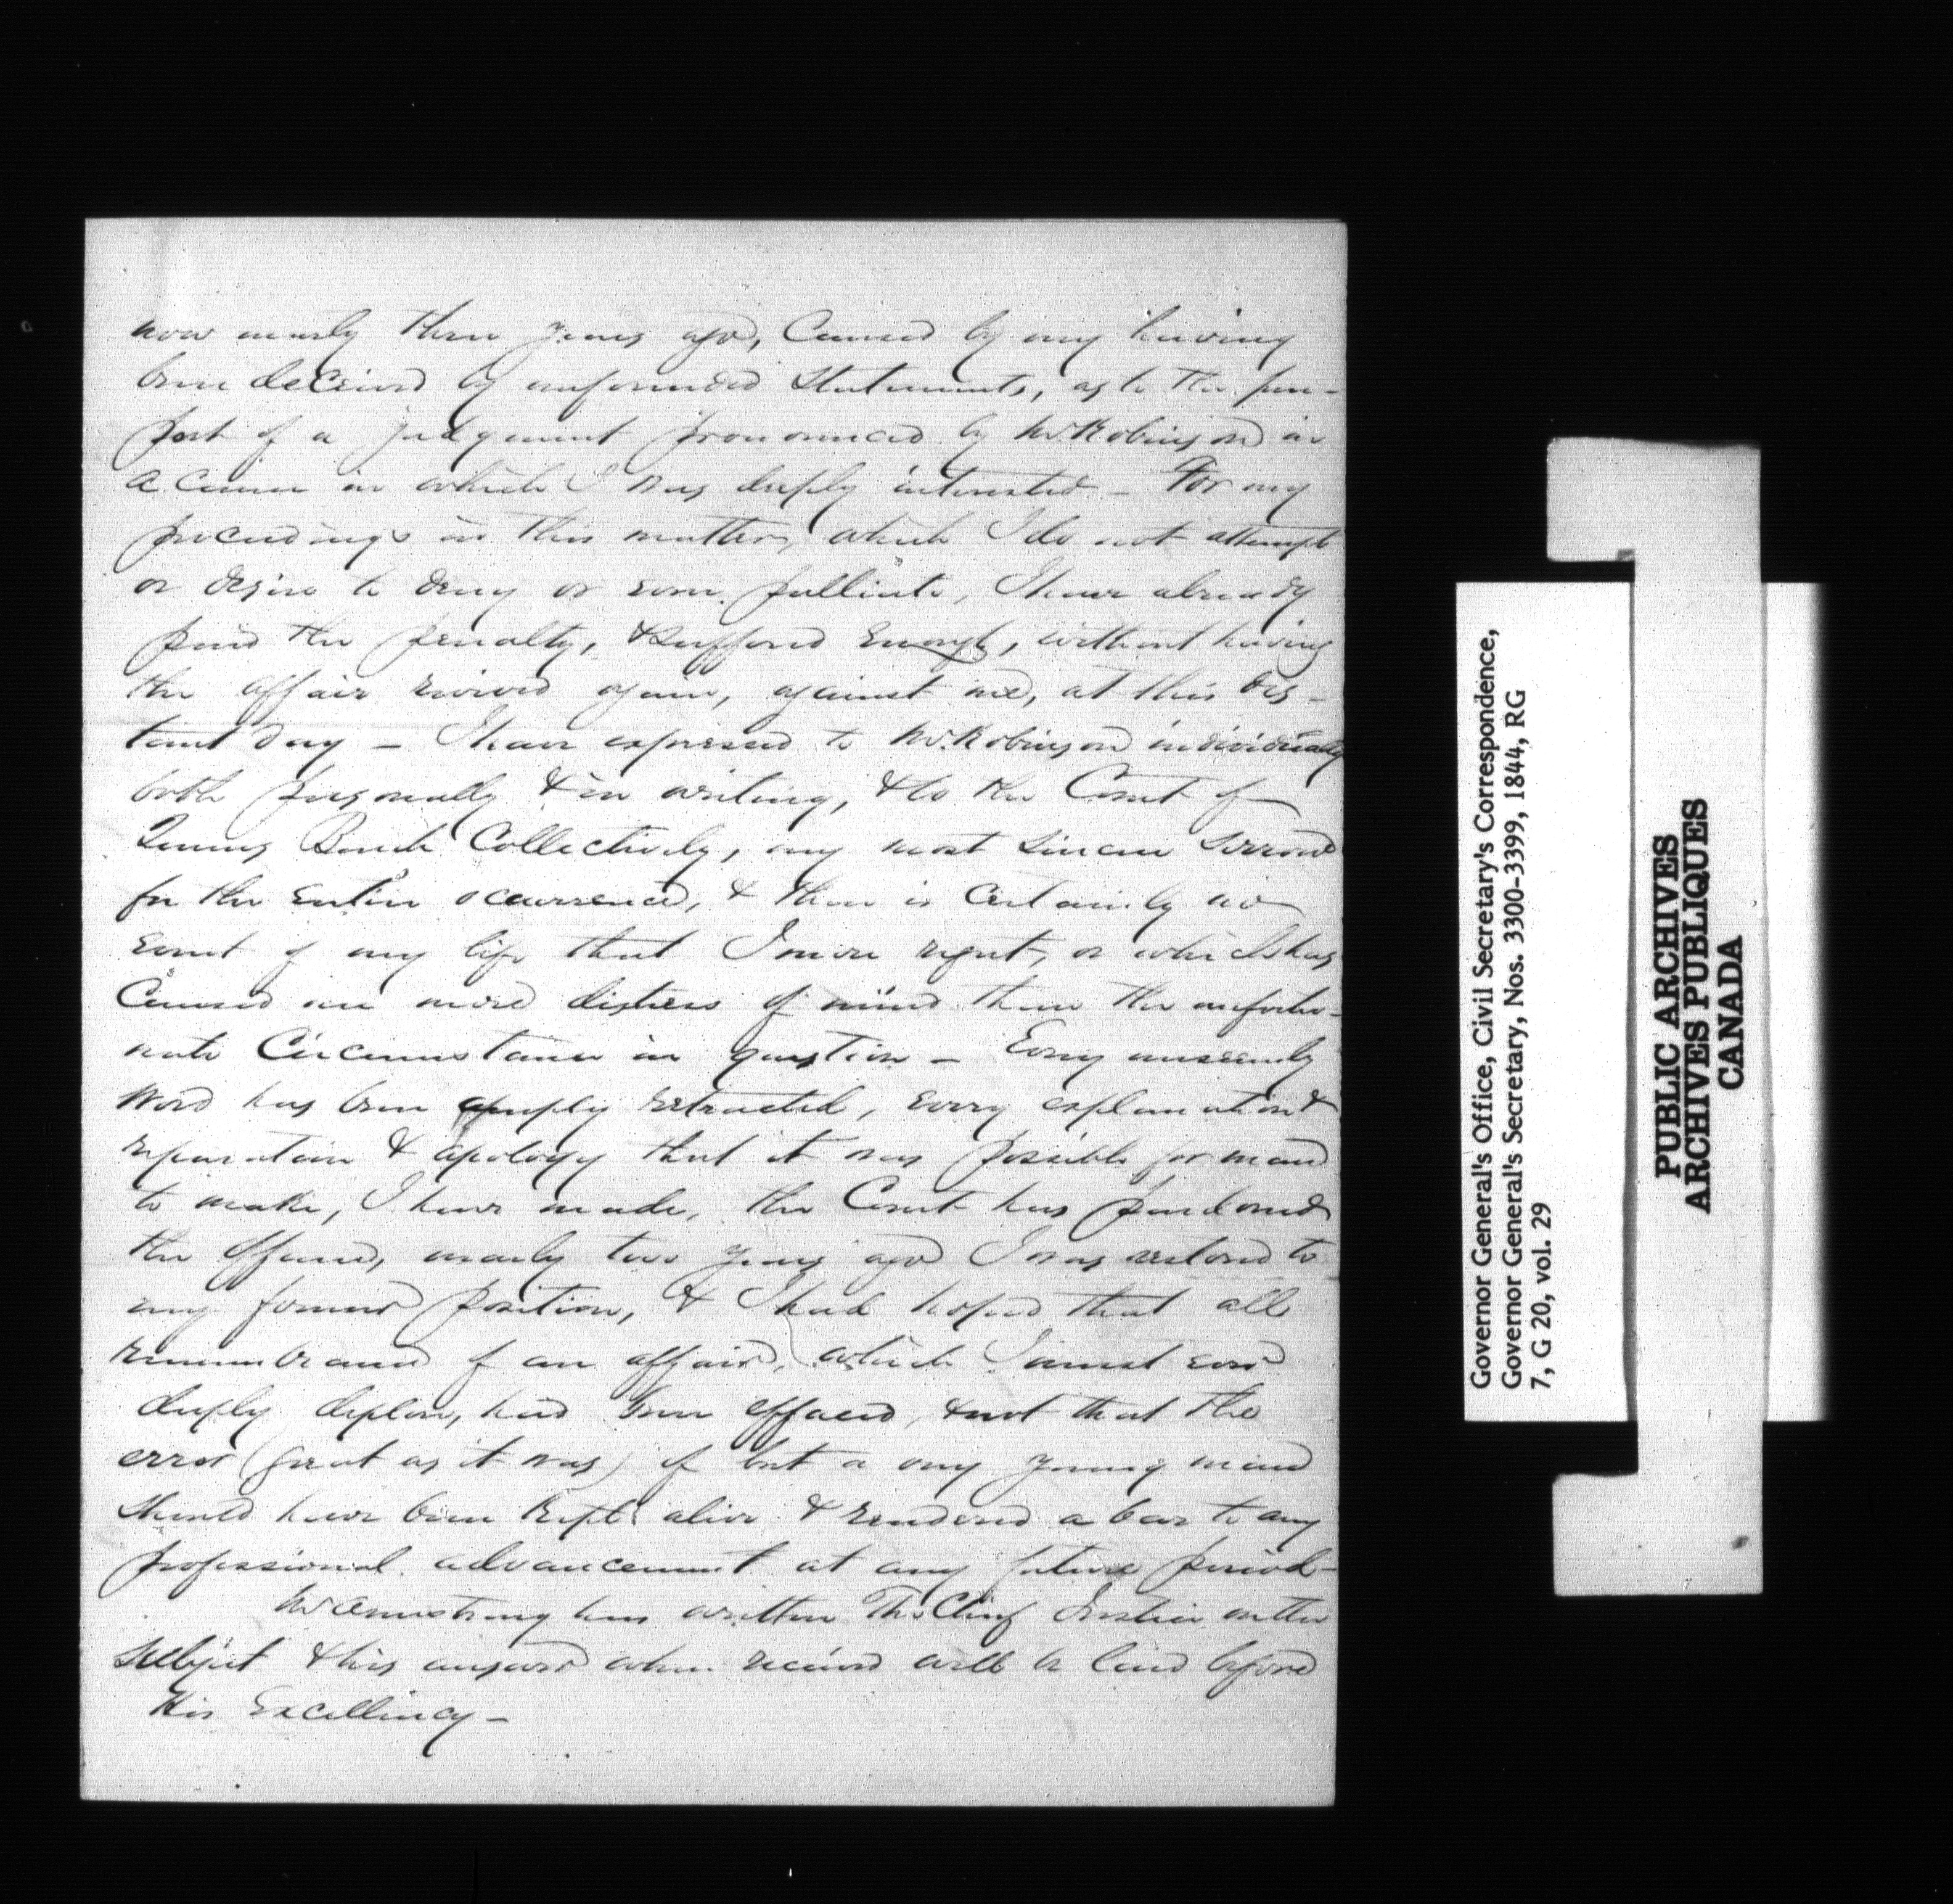 now nearly three years ago, Caused by my having
been deceived by unfounded statements, as to the pur-
port of a judgment pronounced by Mr. Robinson in
a cause in which I was deeply interested - For my
proceedings in this matter, which I do not attempt
or desire to deny or even palliate, I have already
paid the penalty, & suffered enough, without having
the affair revived again, against me, at this dis-
tant day - I have expressed to Mr. Robinson individually
both personally & in writing, & to the Court of
Queens Bench Collectively, my most sincere sorrow
for the entire occurrence, & there is certainly no
event of my life that I more regret, or which has
Caused me more distress of mind than the unfortu-
nate Circumstance in question - Every unseemly
word has been amply retracted, every explanation &
reparation & apology that it was possible for man
to make, I have made, the Court has pardoned
the offence, nearly two years ago I was restored to
my former position, & I had hoped that all
remembrance of an affair, which I must ever
deeply deplore, had been effaced, & not that the
error (great as it was) of but a very young man
should have been kept alive & rendered a bar to any
professional advancement at any future period -
Mr Armstrong has written The Chief Justice on the
subject & his answer when received will be laid before
His Excellency -
Governor General's Office, Civil Secretary's Correspondence,
Governor General's Secretary, Nos. 3300-3399, 1844, RG
7, G 20, vol. 29
PUBLIC ARCHIVES
ARCHIVES PUBLIQUES
CANADA